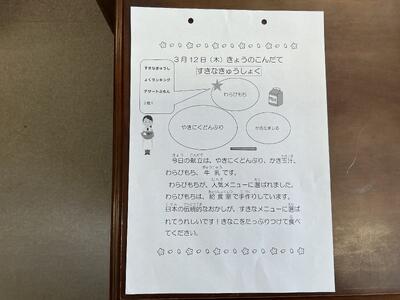 3月12日(木)きょうのこんだて
すきなきゅうしょく
すきなきゅうしょ
くランキング
デザートぶもん
2位!
わらびもち
やきにくどんぶり
かきたまじる
今日の献立は、やきにくどんぶり、かき玉汁、
わらびもち、牛乳です。
わらびもちが、人気メニューに選ばれました。
わらびもちは、給食室で手作りしています。
日本の伝統的なおかしが、すきなメニューに選ば
れてうれしいです!きなこをたっぷりつけて食べ
てください。